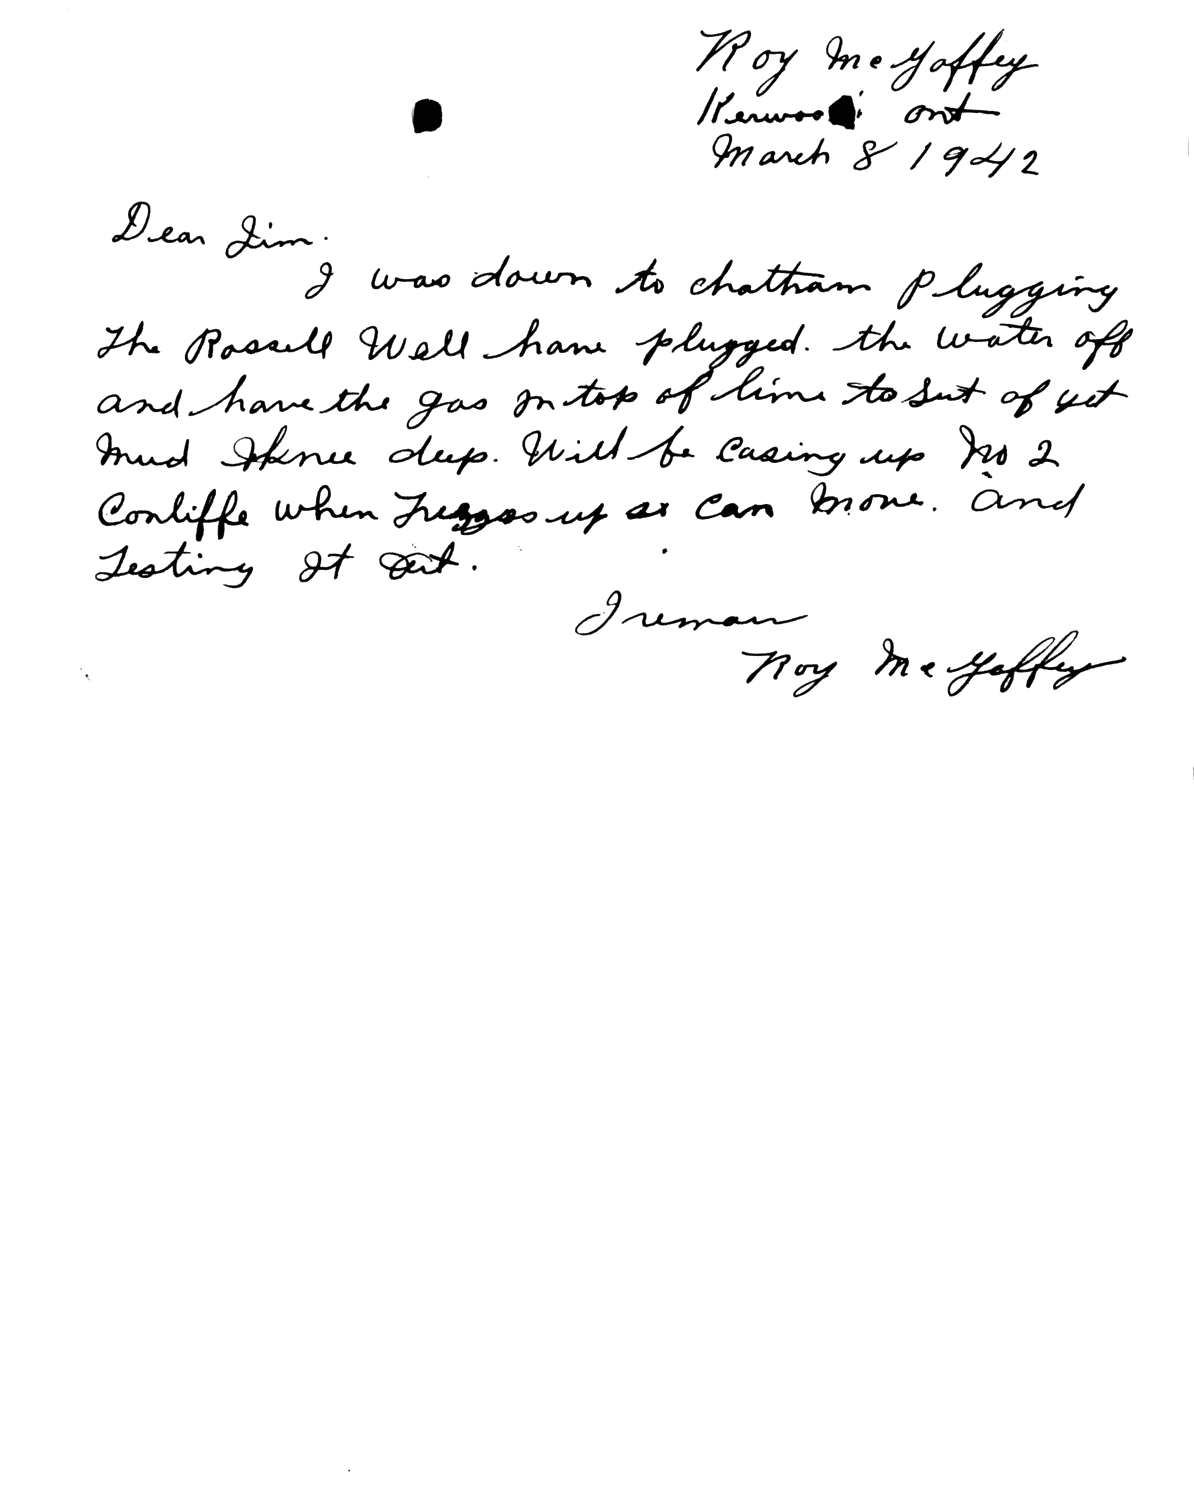 Roy McGaffey
Kerwood Ont
March 8 1942
Dear Jim.
I was down to chatham plugging
The Rossell Well have plugged. the water off
and have the gas on top of lime to sut of yet
Mud knee deep. Will be casing up No 2
Conliffe when up so can move. and
Testing It out.
I reman
Roy McGaffey